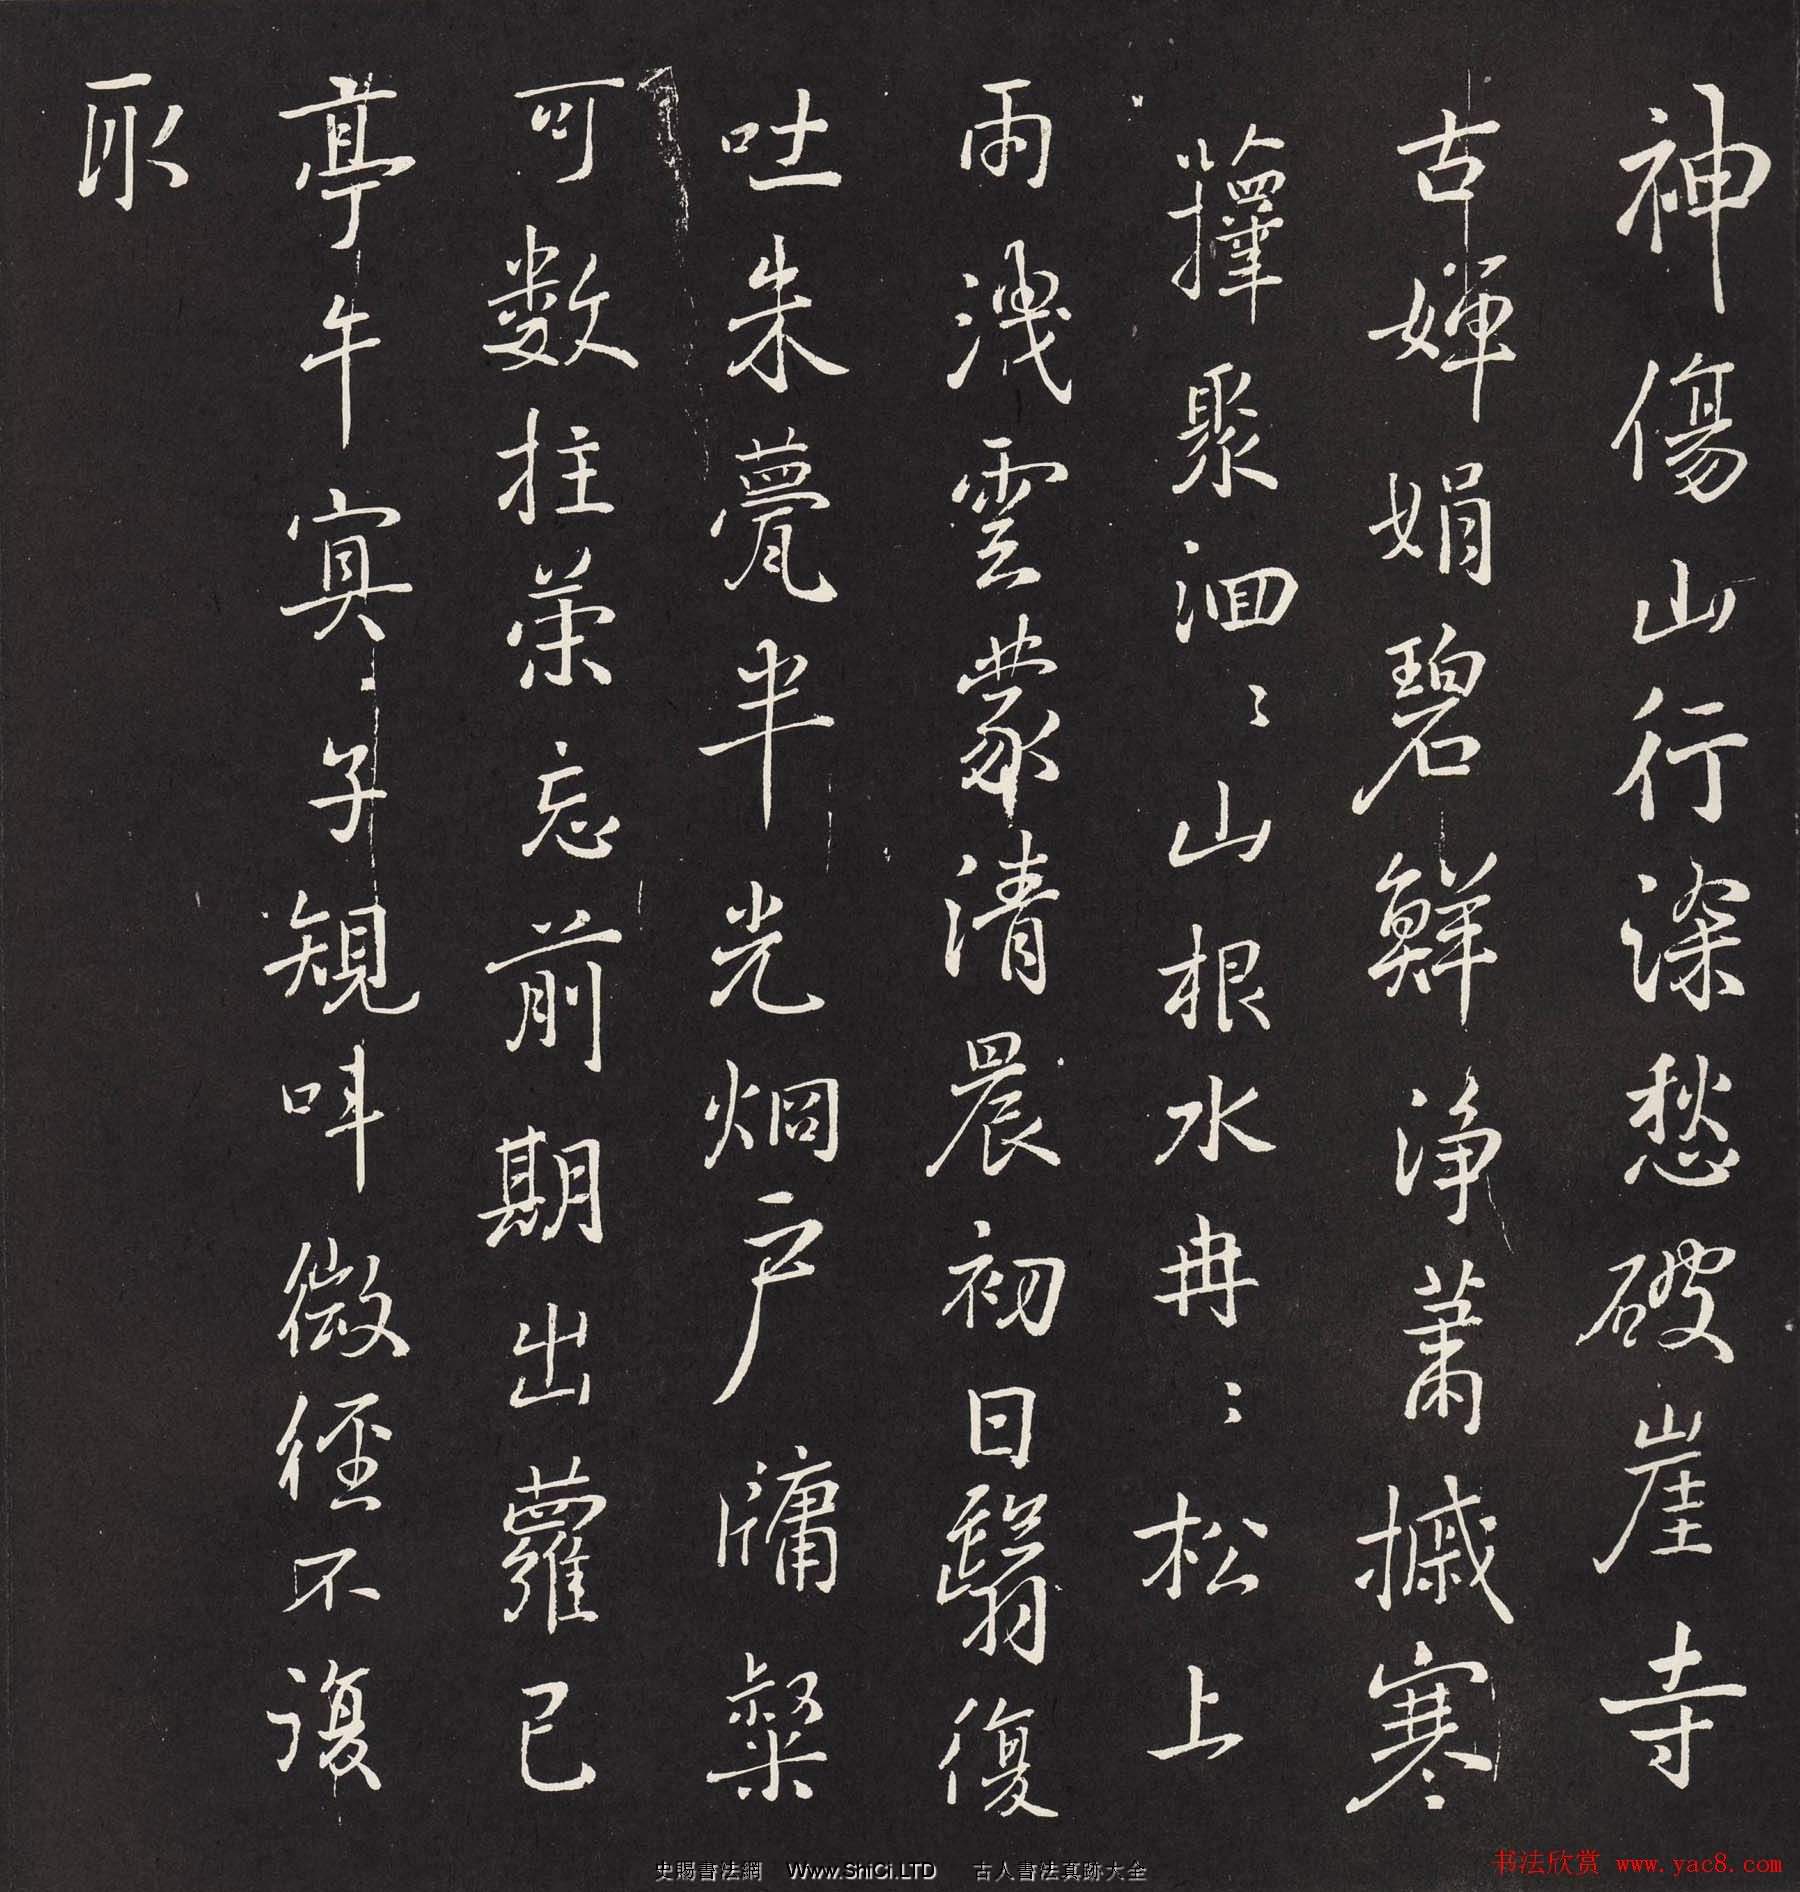 神傷山行深愁破崖寺
古嬋娟碧鮮淨蕭摵寒
籜聚洄〻山根水冉〻松上
雨洩雲蒙清晨初日翳復
吐朱甍半光炯户牖粲
可數拄策忘前期出蘿已
亭午冥子規叫微徑不復
取
史賜書法網 Www.ShiCi.LTD 古人書法真跡大全
书法欣赏 www.yac8.com